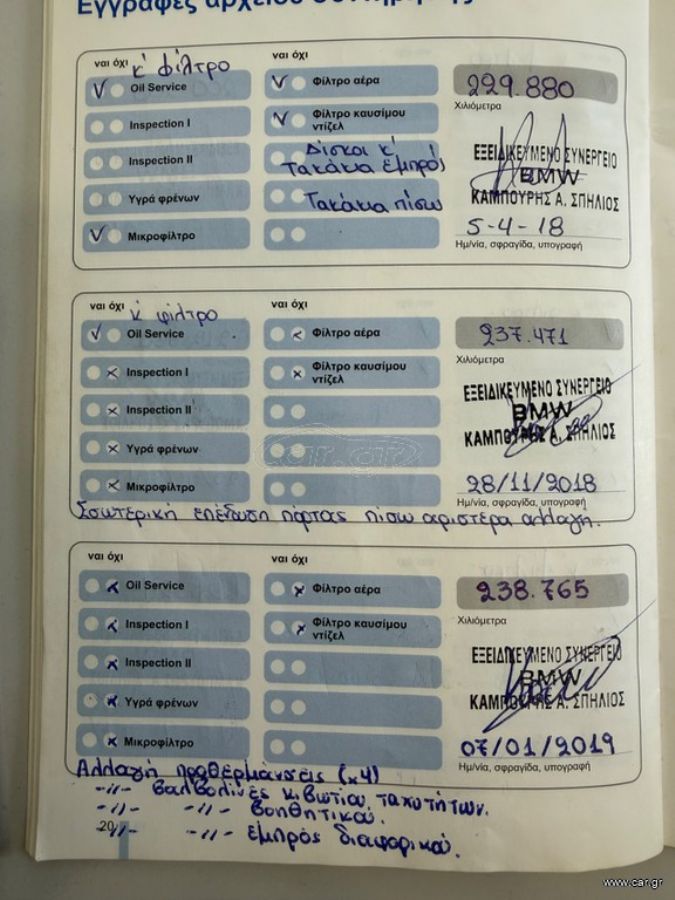 Εγγραφές αρχείου συντήρησης
ναι όχι
κ' φίλτρο
Oil Service
Inspection I
Inspection II
Υγρά φρένων
Μικροφίλτρο
ναι όχι
Φίλτρο αέρα
Φίλτρο καυσίμου
ντίζελ
Δίσκοι κ'
Τακάκια εμπρός
Τακάκια πίσω
229.880
Χιλιόμετρα
ΕΞΕΙΔΙΚΕΥΜΕΝΟ ΣΥΝΕΡΓΕΙΟ
BMW
ΚΑΜΠΟΥΡΗΣ Α. ΣΠΗΛΙΟΣ
5-4-18
Ημ/νία, σφραγίδα, υπογραφή
ναι όχι
κ' φίλτρο
Oil Service
Inspection I
Inspection II
Υγρά φρένων
Μικροφίλτρο
ναι όχι
Φίλτρο αέρα
Φίλτρο καυσίμου
ντίζελ
237.471
Χιλιόμετρα
ΕΞΕΙΔΙΚΕΥΜΕΝΟ ΣΥΝΕΡΓΕΙΟ
BMW
ΚΑΜΠΟΥΡΗΣ Α. ΣΠΗΛΙΟΣ
28/11/2018
Ημ/νία, σφραγίδα, υπογραφή
Εσωτερική επένδυση πόρτας πίσω αριστερά αλλαγή.
ναι όχι
Oil Service
Inspection I
Inspection II
Υγρά φρένων
Μικροφίλτρο
ναι όχι
Φίλτρο αέρα
Φίλτρο καυσίμου
ντίζελ
238.765
Χιλιόμετρα
ΕΞΕΙΔΙΚΕΥΜΕΝΟ ΣΥΝΕΡΓΕΙΟ
BMW
ΚΑΜΠΟΥΡΗΣ Α. ΣΠΗΛΙΟΣ
07/01/2019
Ημ/νία, σφραγίδα, υπογραφή
Αλλαγή προθερμάνσεις (x4)
-//- βαλβολίνες κιβωτίου ταχυτήτων.
-//- -//- βοηθητικού.
-//- -//- εμπρός διαφορικού.
20
car.gr
www.car.gr